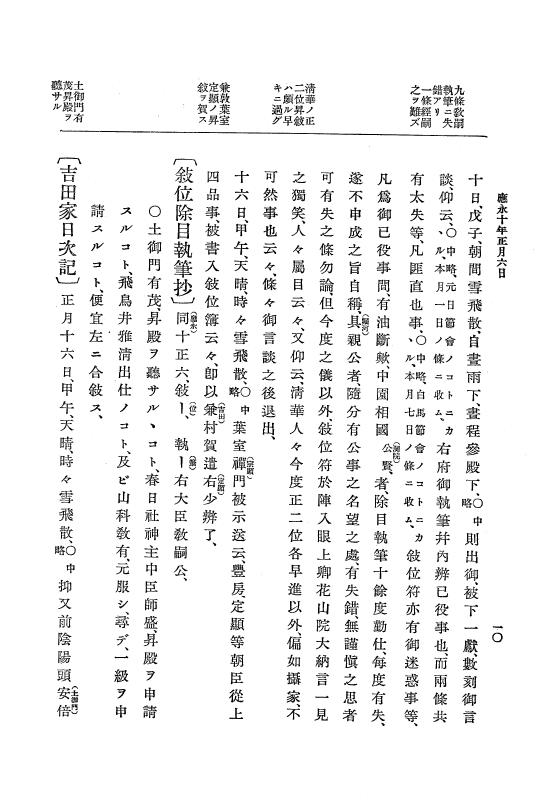 應永十年正月六日
一〇
九條敎嗣
執筆ニ失
錯アリ
一條經嗣
之ヲ難ズ
淸華ノ正
二位昇敍
ハ頗ル早
キニ過グ
兼敦葉室
定顯ノ昇
敍ヲ賀ス
土御門有
茂昇殿ヲ
聽サル
十日、戊子、朝間雪飛散、自晝雨下、晝程參殿下、〇中略 則出御、被下一獻、數刻御言
談、仰云、〇中略、元日節會ノコトニカヽル、本月一日ノ條ニ收ム、 右府御執筆幷內辨已役事也、而兩條共
有太失等、凡匪直也事、〇中略、白馬節會ノコトニカヽル、本月七日ノ條ニ收ム、 敍位符亦有御迷惑事等、
凡爲御已役事間、有油斷歟、中園相國公賢、(洞院)者、除目執筆十餘度勤仕、每度有失、
遂不申成之旨自稱、具親公(堀河)者、隨分有公事之名望之處、有失錯、無謹愼之思者
可有失之條勿論、但今度之儀以外、敍位符於陣入眼上卿花山院大納言一見
之獨笑、人々屬目云々、又仰云、淸華人々今度正二位各早進以外、偏如攝家、不
可然事也云々、條々御言談之後退出、
十六日、甲午、天晴、時々雪飛散、〇中略 葉室禪門(宗顯)被示送云、豐房、定顯等朝臣從上
四品事、被書入敍位簿云々、卽以兼村(吉田)賀遣右少辨(定顯)了、
〔敍位除目執筆抄〕 同(應永)十正六、敍ー、(位) 執ー(筆)右大臣敎嗣公、
〇土御門有茂、昇殿ヲ聽サルヽコト、春日社神主中臣師盛、昇殿ヲ申請
スルコト、飛鳥井雅淸出仕ノコト、及ビ山科敎有、元服シ、尋デ、一級ヲ申
請スルコト、便宜左ニ合敍ス、
〔吉田家日次記〕 正月十六日、甲午、天晴、時々雪飛散、〇中略 抑又前陰陽頭安倍(土御門)